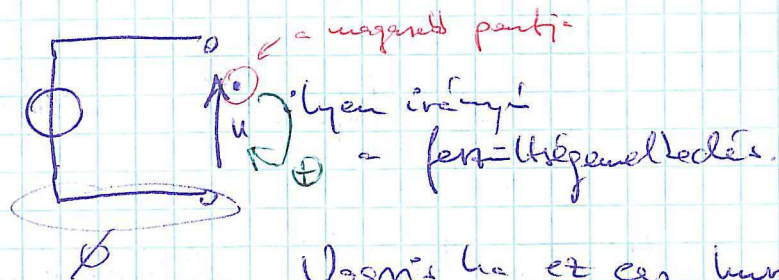 a magasabb pontja
ilyen irányú
u
⊕
a feszültségemelkedés.
ϕ
Vagyis ha ez egy